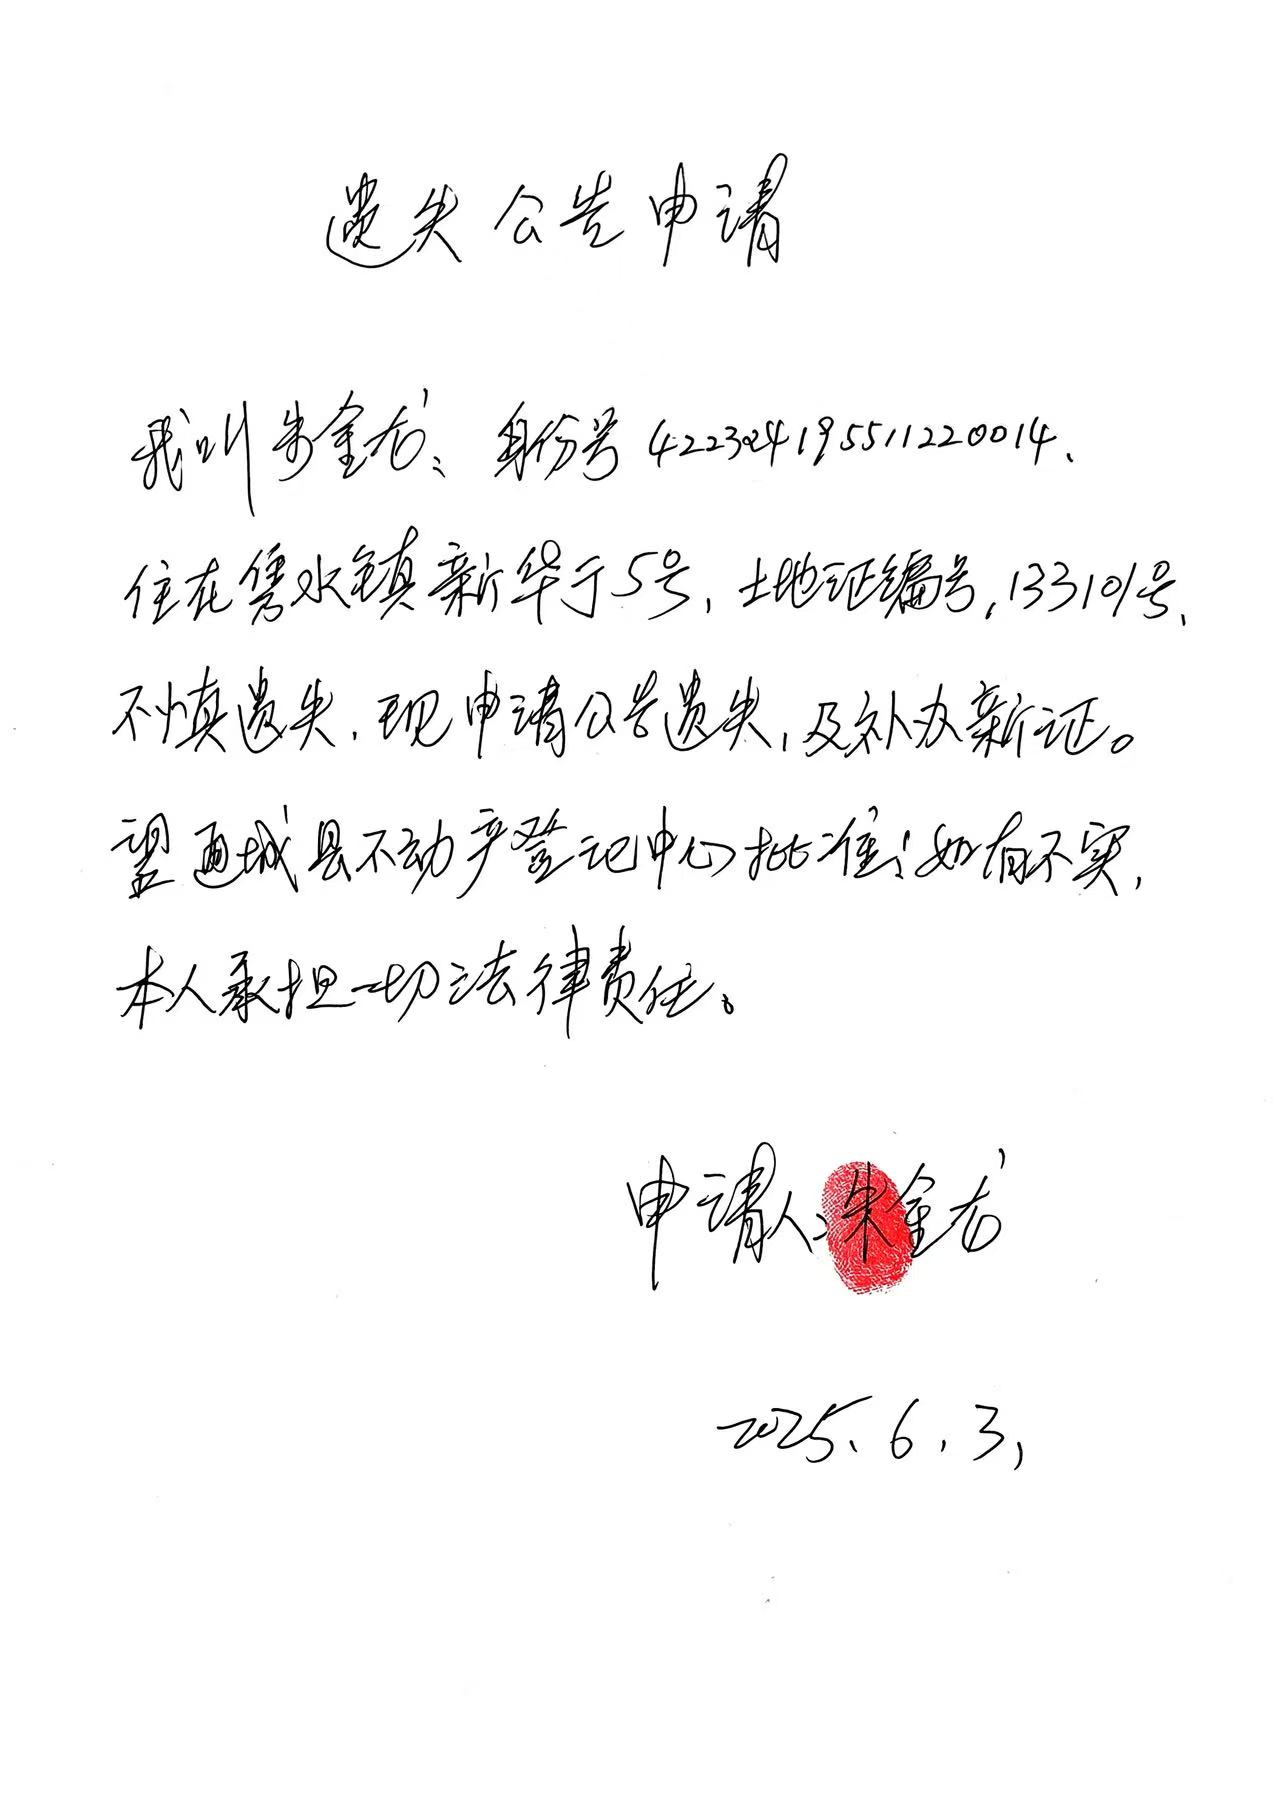 遗失公告申请
我叫朱金龙、身份号422324195511220014、
住在隽水镇新华于5号,土地证编号,133101号、
不慎遗失.现申请公告遗失,及补办新证。
望通城县不动产登记中心批准;如有不实,
本人承担一切法律责任。
申请人:朱金龙
2025.6.3,